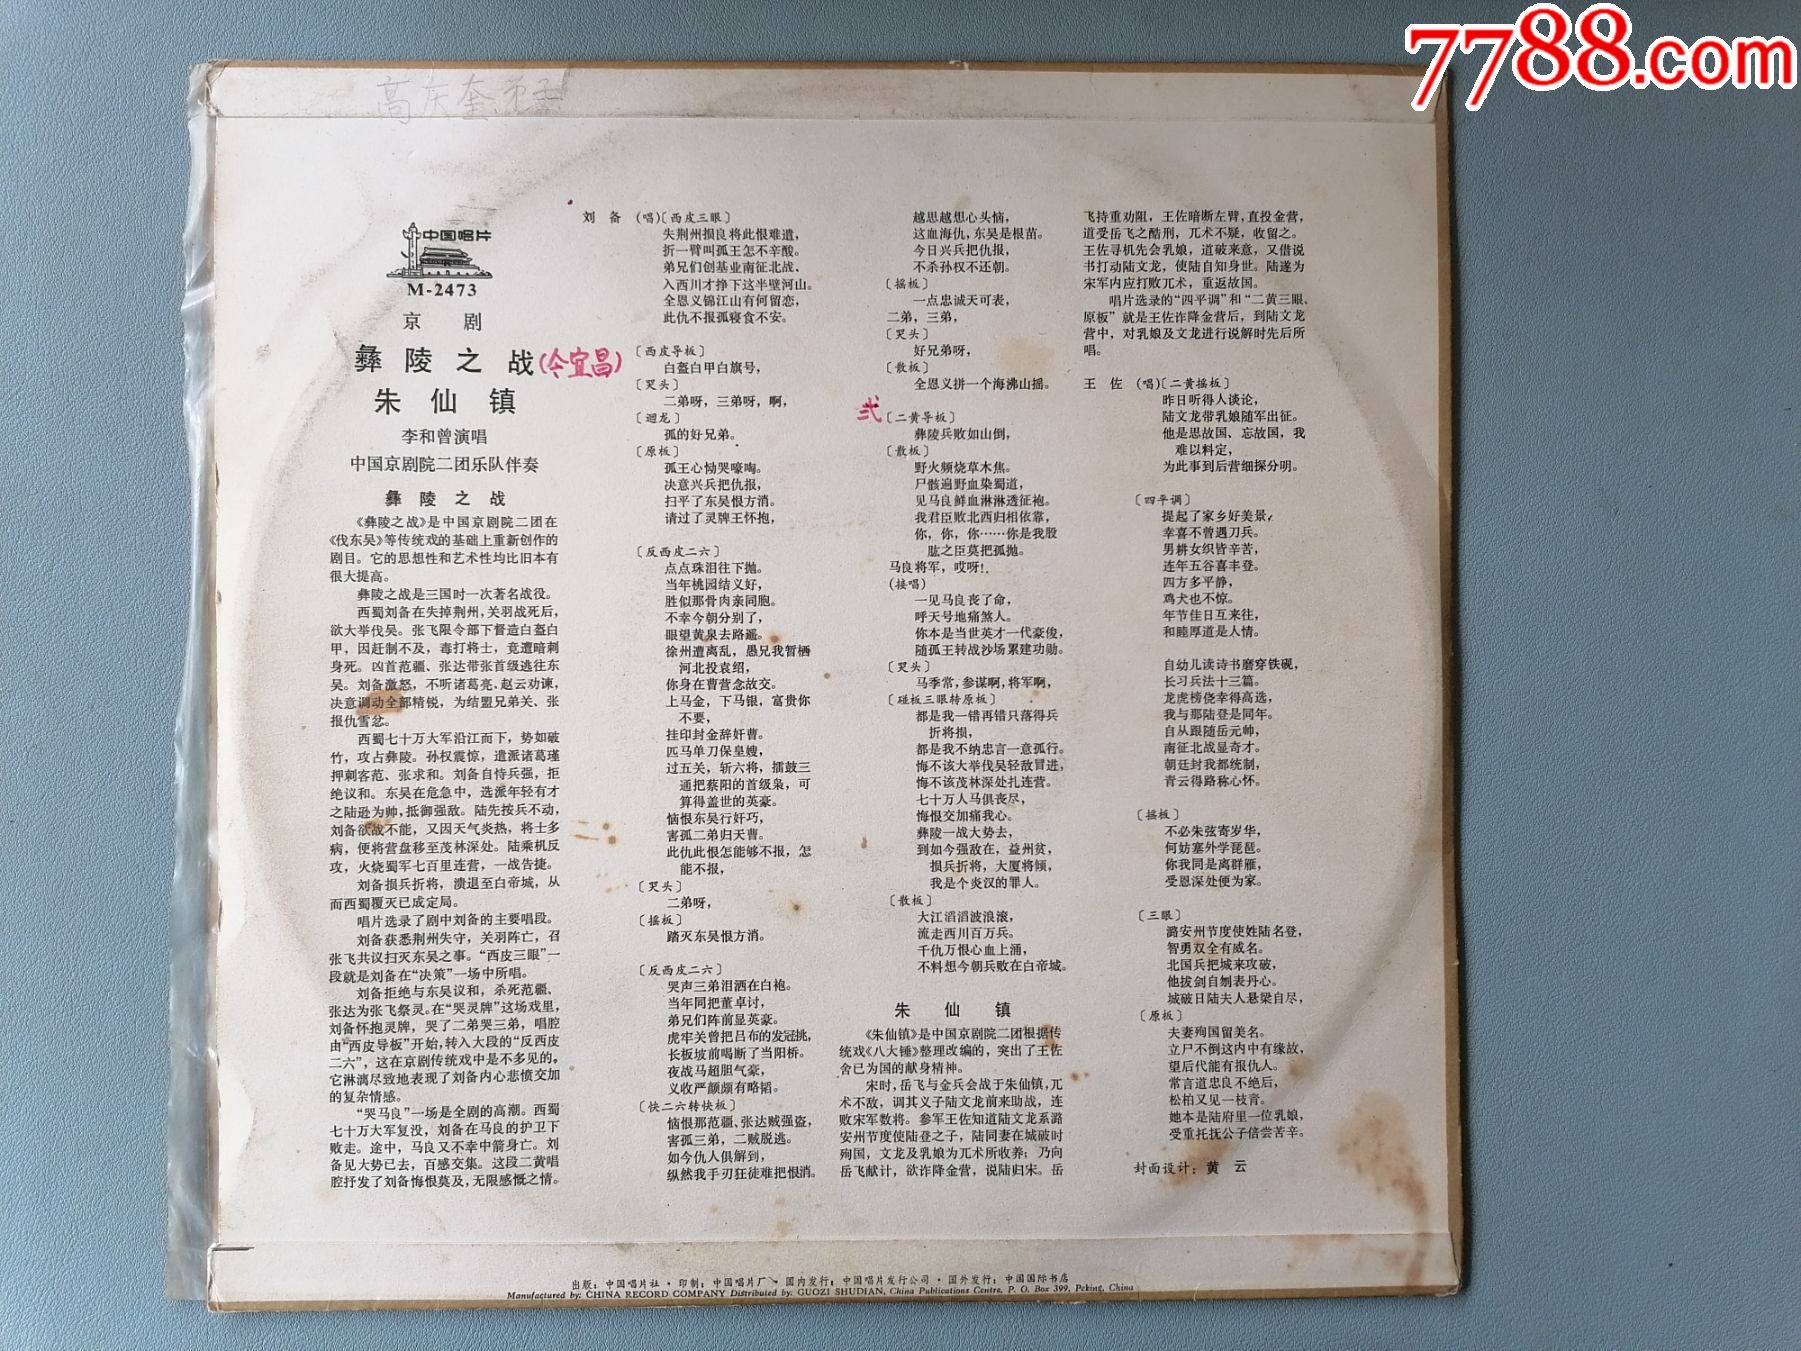 7788.com
高庆奎
中国唱片
M-2473
京 剧
彝陵之战(今宜昌)
朱仙镇
李和曾演唱
中国京剧院二团乐队伴奏
彝陵之战
《彝陵之战》是中国京剧院二团在
《伐东吴》等传统戏的基础上重新创作的
剧目。它的思想性和艺术性均比旧本有
很大提高。
彝陵之战是三国时一次著名战役。
西蜀刘备在失掉荆州,关羽战死后,
欲大举伐吴。张飞限令部下督造白盔白
甲,因赶制不及,毒打将士,竟遭暗刺
身死。凶首范疆、张达带张首级逃往东
吴。刘备激怒,不听诸葛亮、赵云劝谏,
决意调动全部精锐,为结盟兄弟关、张
报仇雪忿。
西蜀七十万大军沿江而下,势如破
竹,攻占彝陵。孙权震惊,遣派诸葛瑾
押刺客范、张求和。刘备自恃兵强,拒
绝议和。东吴在危急中,选派年轻有才
之陆逊为帅,抵御强敌。陆先按兵不动,
刘备欲战不能,又因天气炎热,将士多
病,便将营盘移至茂林深处。陆乘机反
攻,火烧蜀军七百里连营,一战告捷。
刘备损兵折将,溃退至白帝城,从
而西蜀覆灭已成定局。
唱片选录了剧中刘备的主要唱段。
刘备获悉荆州失守,关羽阵亡,召
张飞共议扫灭东吴之事。“西皮三眼”一
段就是刘备在“决策”一场中所唱。
刘备拒绝与东吴议和,杀死范疆、
张达为张飞祭灵。在“哭灵牌”这场戏里,
刘备怀抱灵牌,哭了二弟哭三弟,唱腔
由“西皮导板”开始,转入大段的“反西皮
二六”,这在京剧传统戏中是不多见的,
它淋漓尽致地表现了刘备内心悲愤交加
的复杂情感。
“哭马良”一场是全剧的高潮。西蜀
七十万大军复没,刘备在马良的护卫下
败走。途中,马良又不幸中箭身亡。刘
备见大势已去,百感交集。这段二黄唱
腔抒发了刘备悔恨莫及,无限感慨之情。
刘 备 (唱)〔西皮三眼〕
失荆州损良将此恨难遣,
折一臂叫孤王怎不辛酸。
弟兄们创基业南征北战、
入西川才挣下这半壁河山。
全恩义锦江山有何留恋,
此仇不报孤寝食不安。
〔西皮导板〕
白盔白甲白旗号,
〔哭头〕
二弟呀,三弟呀,啊,
〔迴龙〕
孤的好兄弟。
〔原板〕
孤王心恸哭嚎啕。
决意兴兵把仇报,
扫平了东吴恨方消。
请过了灵牌王怀抱,
〔反西皮二六〕
点点珠泪往下抛。
当年桃园结义好,
胜似那骨肉亲同胞。
不幸今朝分别了,
眼望黄泉去路遥。
徐州遭离乱,愚兄我暂栖
河北投袁绍,
你身在曹营念故交。
上马金,下马银,富贵你
不要,
挂印封金辞奸曹。
匹马单刀保皇嫂,
过五关,斩六将,擂鼓三
通把蔡阳的首级枭,可
算得盖世的英豪。
恼恨东吴行奸巧,
害孤二弟归天曹。
此仇此恨怎能够不报,怎
能不报,
〔哭头〕
二弟呀,
〔摇板〕
踏灭东吴恨方消。
〔反西皮二六〕
哭声三弟泪洒在白袍。
当年同把董卓讨,
弟兄们阵前显英豪。
虎牢关曾把吕布的发冠挑,
长板坡前喝断了当阳桥。
夜战马超胆气豪,
义收严颜颇有略韬。
〔快二六转快板〕
恼恨那范疆、张达贼强盗,
害孤三弟,二贼脱逃。
如今仇人俱解到,
纵然我手刃狂徒难把恨消。
越思越想心头恼,
这血海仇,东吴是根苗。
今日兴兵把仇报,
不杀孙权不还朝。
〔摇板〕
一点忠诚天可表,
二弟,三弟,
〔哭头〕
好兄弟呀,
〔散板〕
全恩义拼一个海沸山摇。
弍〔二黄导板〕
彝陵兵败如山倒,
〔散板〕
野火频烧草木焦。
尸骸遍野血染蜀道,
见马良鲜血淋淋透征袍。
我君臣败北西归相依靠,
你,你,你……你是我股
肱之臣莫把孤抛。
马良将军,哎呀!
(接唱)
一见马良丧了命,
呼天号地痛煞人。
你本是当世英才一代豪俊,
随孤王转战沙场累建功勋。
〔哭头〕
马季常,参谋啊,将军啊,
〔碰板三眼转原板〕
都是我一错再错只落得兵
折将损,
都是我不纳忠言一意孤行。
悔不该大举伐吴轻敌冒进,
悔不该茂林深处扎连营。
七十万人马俱丧尽,
悔恨交加痛我心。
彝陵一战大势去,
到如今强敌在,益州贫,
损兵折将,大厦将倾,
我是个炎汉的罪人。
〔散板〕
大江滔滔波浪滚,
流走西川百万兵。
千仇万恨心血上涌,
不料想今朝兵败在白帝城。
朱仙镇
《朱仙镇》是中国京剧院二团根据传
统戏《八大锤》整理改编的,突出了王佐
舍已为国的献身精神。
宋时,岳飞与金兵会战于朱仙镇,兀
术不敌,调其义子陆文龙前来助战,连
败宋军数将。参军王佐知道陆文龙系潞
安州节度使陆登之子,陆同妻在城破时
殉国,文龙及乳娘为兀术所收养;乃向
岳飞献计,欲诈降金营,说陆归宋。岳
飞持重劝阻,王佐暗断左臂,直投金营,
道受岳飞之酷刑,兀术不疑,收留之。
王佐寻机先会乳娘,道破来意,又借说
书打动陆文龙,使陆自知身世。陆遂为
宋军内应打败兀术,重返故国。
唱片选录的“四平调”和“二黄三眼、
原板”就是王佐诈降金营后,到陆文龙
营中,对乳娘及文龙进行说解时先后所
唱。
王 佐 (唱)〔二黄摇板〕
昨日听得人谈论,
陆文龙带乳娘随军出征。
他是思故国、忘故国,我
难以料定,
为此事到后营细探分明。
〔四平调〕
提起了家乡好美景,
幸喜不曾遇刀兵。
男耕女织皆辛苦,
连年五谷喜丰登。
四方多平静,
鸡犬也不惊。
年节佳日互来往,
和睦厚道是人情。
自幼儿读诗书磨穿铁砚,
长习兵法十三篇。
龙虎榜侥幸得高选,
我与那陆登是同年。
自从跟随岳元帅,
南征北战显奇才。
朝廷封我都统制,
青云得路称心怀。
〔摇板〕
不必朱弦寄岁华,
何妨塞外学琵琶。
你我同是离群雁,
受恩深处便为家。
〔三眼〕
潞安州节度使姓陆名登,
智勇双全有威名。
北国兵把城来攻破,
他拔剑自刎表丹心。
城破日陆夫人悬梁自尽,
〔原板〕
夫妻殉国留美名。
立尸不倒这内中有缘故,
望后代能有报仇人。
常言道忠良不绝后,
松柏又见一枝青。
她本是陆府里一位乳娘,
受重托抚公子倍尝苦辛。
封面设计:黄 云
出版:中国唱片社·印制:中国唱片厂·国内发行:中国唱片发行公司·国外发行:中国国际书店
Manufactured by: CHINA RECORD COMPANY Distributed by: GUOZI SHUDIAN, China Publications Centre, P. O. Box 399, Peking, China